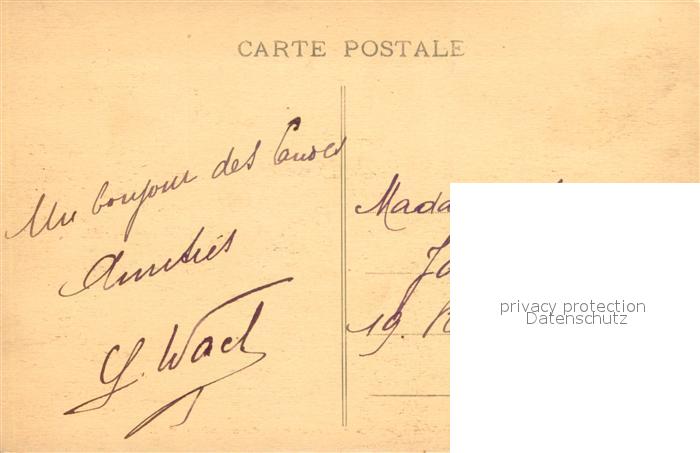 CARTE POSTALE
Un bonjour des
Amitiés
Mada
19.
privacy protection
Datenschutz